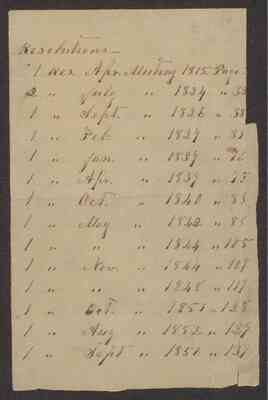 Resolutions
1 Res. Apr. Meeting 1815 Page
2 " July " 1824 " 53
1 " Sept. " 1826 " 58
1 " Feb " 1827 "
1 " Jan. " 1837 "
1 " Apr. " 1837 " 75
1 " Oct. " 1840 " 83
1 " May " 1842 " 85
1 " " " 1844 " 105
1 " Nov. " 1844 " 109
1 " " " 1848 " 119
1 " Oct. " 1851 " 128
1 " Aug " 1852 " 129
1 " Sept " 1856 " 137